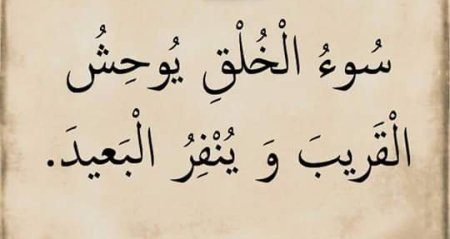 سُوءُ الْخُلْقِ يُوحِشُ
الْقَرِيبَ وَ يُنْفِرُ الْبَعيدَ.